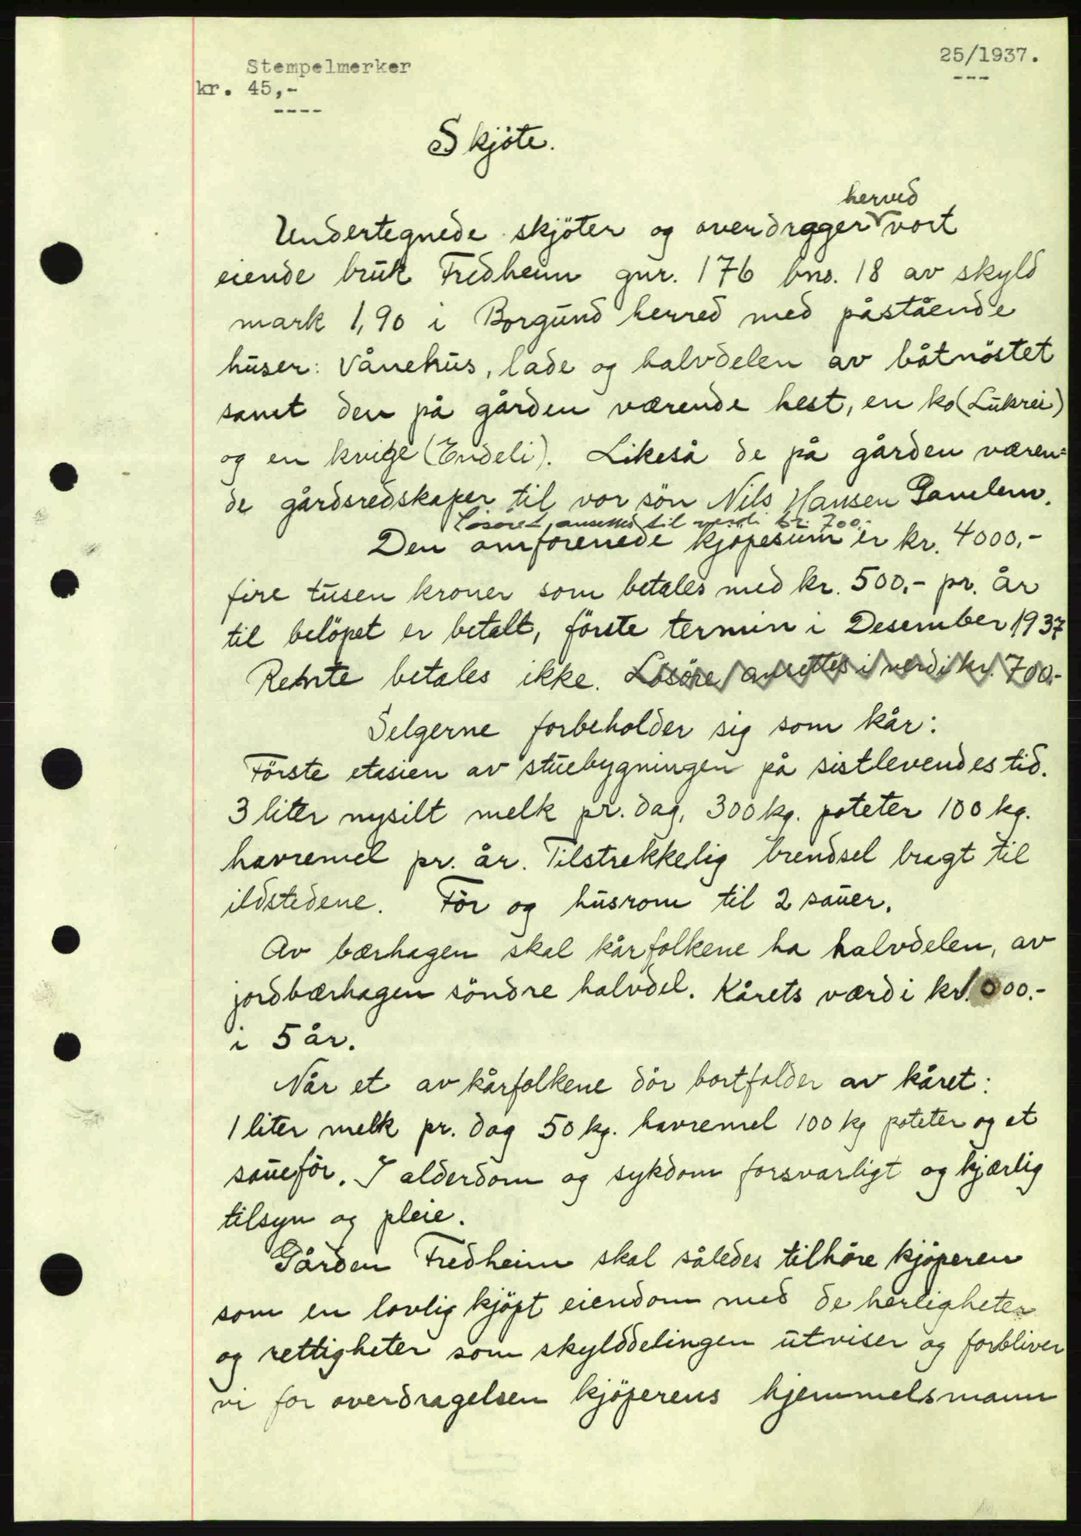 25/1937.
---
Stempelmerker
kr. 45,-
----
Skjöte.
herved
Undertegnede skjöter og overdragger vort
eiende bruk Fredheim gnr. 176 bno. 18 av skyld
mark 1,90 i Borgund herred med påstående
huser: Vånehus, lade og halvdelen av båtnöstet
samt den på gården værende hest, en ko (Lukrei)
og en kvige (Endeli). Likeså de på gården væren=
de gårdsredskaper til vor sön Nils Hansen Gamlem.
Lösöret ansettes til verdi kr. 700,-
Den omforenede kjöpesum er kr. 4000,-
fire tusen kroner som betales med kr. 500,- pr. år
til belöpet er betalt, förste termin i Desember 1937
Rente betales ikke. Lösöre ansettes i verdi kr. 700,-
Selgerne forbeholder sig som kår:
Förste etasien av stuebygningen på sistlevendes tid.
3 liter nysilt melk pr. dag, 300 kg. poteter 100 kg.
havremel pr. år. Tilstrekkelig brendsel bragt til
ildstedene. För og husrom til 2 sauer.
Av bærhagen skal kårfolkene ha halvdelen, av
jordbærhagen söndre halvdel. Kårets værdi kr. 1000.-
i 5 år.
Når et av kårfolkene dör bortfalder av kåret:
1 liter melk pr. dag 50 kg. havremel 100 kg poteter og et
saueför. I alderdom og sykdom forsvarligt og kjærlig
tilsyn og pleie.
Gården Fredheim skal således tilhöre kjöperen
som en lovlig kjöpt eiendom med de herligheter
og rettigheter som skylddelingen utviser og forbliver
vi for overdragelsen kjöperens hjemmelsmann